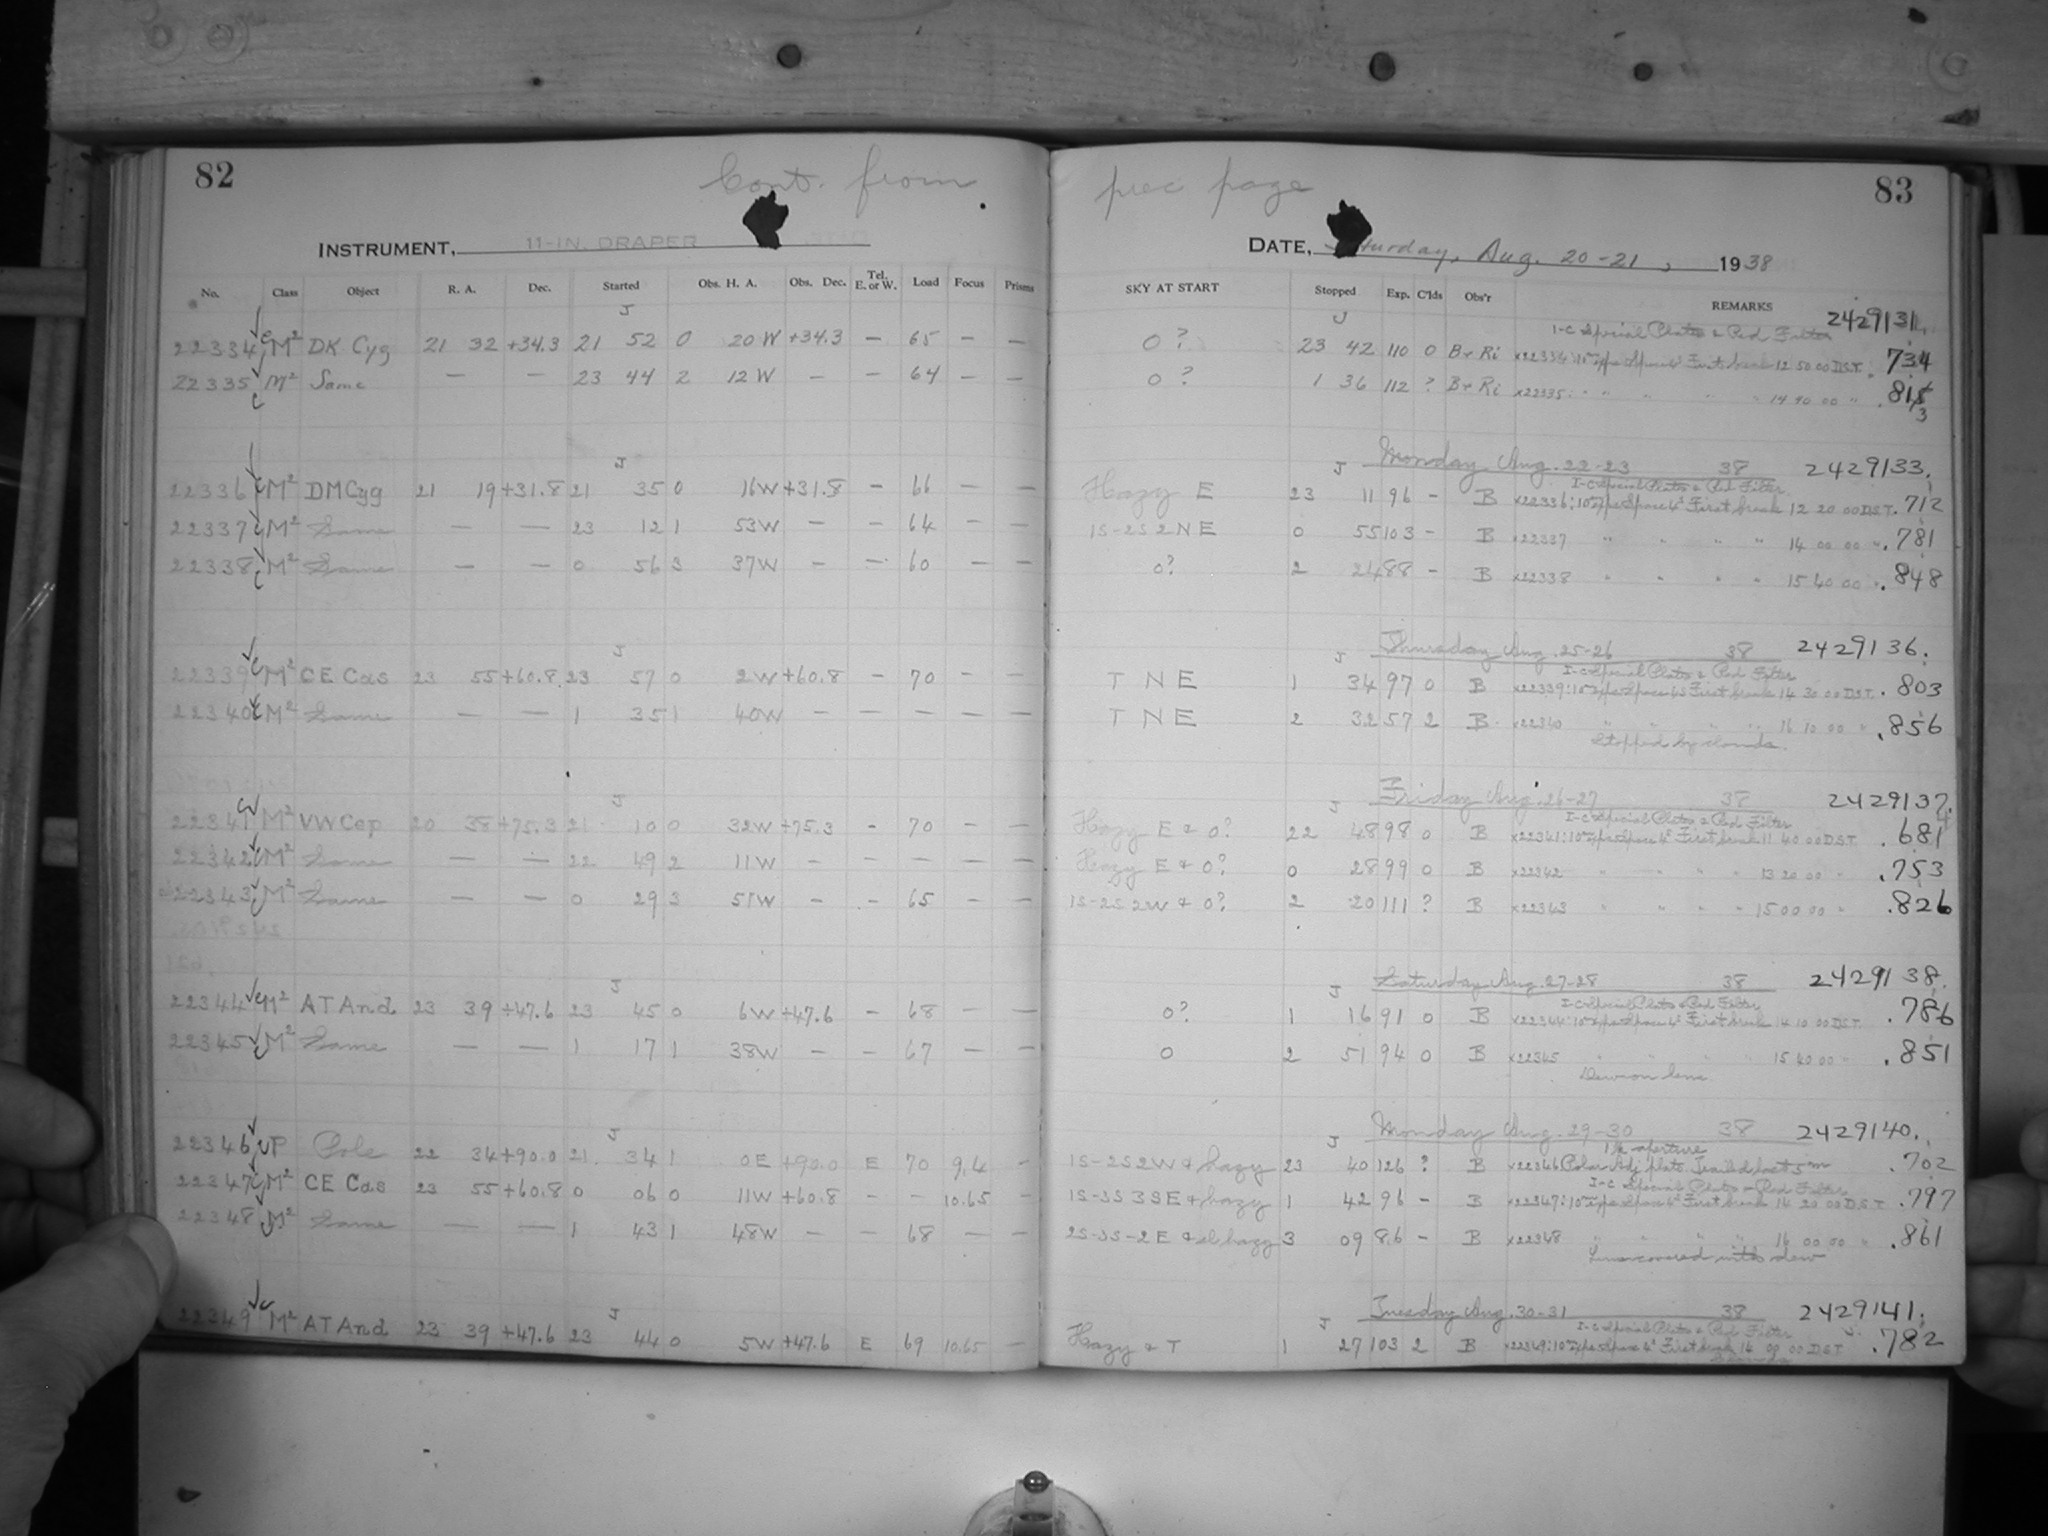 82
Cont. from
INSTRUMENT, 11-IN. DRAPER
No. Class Object R. A. Dec. Started Obs. H. A. Obs. Dec. Tel. E. or W. Load Focus Prisms
J
22334 M² DK Cyg 21 32 +34.3 21 52 0 20W +34.3 — 65 — —
22335 M² Same — — 23 44 2 12W — — 64 — —
J
22336 M² DM Cyg 21 19 +31.8 21 35 0 16W +31.8 — 66 — —
22337 M² Same — — 23 12 1 53W — — 64 — —
22338 M² Same — — 0 56 3 37W — — 60 — —
J
22339 M² CE Cas 23 55 +60.8 23 57 0 2W +60.8 — 70 — —
22340 M² Same — — 1 35 1 40W — — — — —
J
22341 M² VW Cep 20 38 +75.3 21 10 0 32W +75.3 — 70 — —
22342 M² Same — — 22 49 2 11W — — — — —
22343 M² Same — — 0 29 3 51W — — 65 — —
J
22344 M² AT And 23 39 +47.6 23 45 0 6W +47.6 — 68 — —
22345 M² Same — — 1 17 1 38W — — 67 — —
J
22346 P Pole 22 34 +90.0 21 34 1 0E +90.0 E 70 9.4 —
22347 M² CE Cas 23 55 +60.8 0 06 0 11W +60.8 — — 10.65 —
22348 M² Same — — 1 43 1 48W — — 68 — —
J
22349 M² AT And 23 39 +47.6 23 44 0 5W +47.6 E 69 10.65 —
prec page
83
DATE, Saturday, Aug. 20-21, 1938
SKY AT START Stopped Exp. C'lds Obs'r REMARKS
J I-C Special Plates & Red Filter 2429131.
0? 23 42 110 0 B+Ri x22334: First break 12 50 00 D.S.T. .734
0? 1 36 112 ? B+Ri x22335: " " " " 14 40 00 " .813
J Monday Aug. 22-23 38 2429133.
I-C Special Plates & Red Filter
Hazy E 23 11 96 — B x22336: First break 12 20 00 D.S.T. .712
1S-2S 2NE 0 55 103 — B x22337 " " " " 14 00 00 " .781
0? 2 24 88 — B x22338 " " " " 15 40 00 " .848
J Thursday Aug. 25-26 38 2429136.
I-C Special Plates & Red Filter
T NE 1 34 97 0 B x22339: First break 14 30 00 D.S.T. .803
T NE 2 32 57 2 B x22340 " " " " 16 10 00 " .856
Stopped by clouds.
J Friday Aug. 26-27 38 2429137.
I-C Special Plates & Red Filter
Hazy E & 0? 22 48 98 0 B x22341: First break 11 40 00 D.S.T. .681
Hazy E & 0? 0 28 99 0 B x22342 " " " " 13 20 00 " .753
1S-2S 2W & 0? 2 20 111 ? B x22343 " " " " 15 00 00 " .826
J Saturday Aug. 27-28 38 2429138.
I-C Special Plates & Red Filter
0? 1 16 91 0 B x22344: First break 14 10 00 D.S.T. .786
0 2 51 94 0 B x22345 " " " " 15 40 00 " .851
Dew on lens
J Monday Aug. 29-30 38 2429140.
1½ aperture
1S-2S 2W & hazy 23 40 126 ? B x22346 Polar Adj. plate. Trailed last 5m .702
I-C Special Plates & Red Filter
1S-3S 3SE & hazy 1 42 96 — B x22347: First break 14 20 00 D.S.T. .797
2S-3S-2E & sl hazy 3 09 86 — B x22348 " " " " 16 00 00 " .861
Lens covered with dew
J Tuesday Aug. 30-31 38 2429141.
I-C Special Plates & Red Filter
Hazy & T 1 27 103 2 B x22349: First break 14 00 00 D.S.T. .782